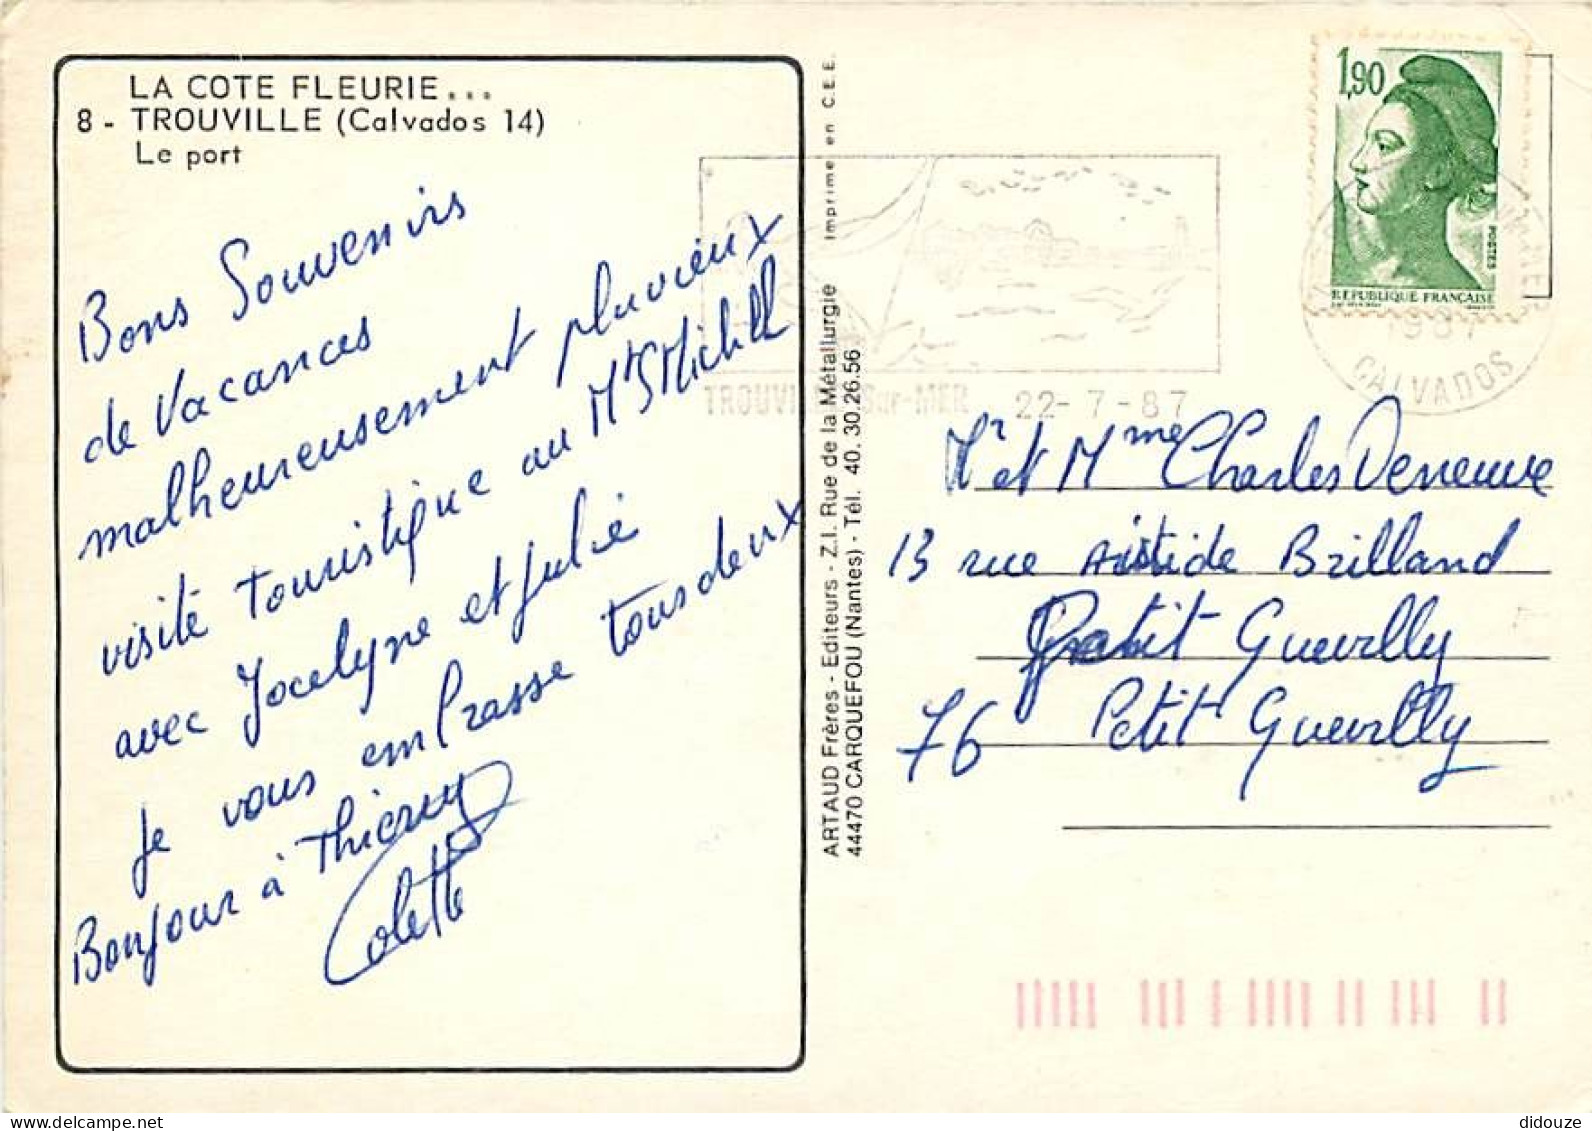 LA COTE FLEURIE...
8 - TROUVILLE (Calvados 14)
Le port
Bons Souvenirs
de Vacances
malheureusement pluvieux
visite touristique au Mt St Michell
avec Jocelyne et Julie
je vous embrasse tous deux
Bonjour à Thierry
Colette
ARTAUD Frères - Editeurs - Z.I. Rue de la Métallurgie Imprimé en C.E.E.
44470 CARQUEFOU (Nantes) - Tél. 40. 30.26.56
TROUVILLE-sur-MER 22-7-87
1,90
POSTES
REPUBLIQUE FRANÇAISE
1987
CALVADOS
Mr et Mme Charles Deneuve
13 rue Aristide Brilland
Petit Guevilly
76 Petit Guevilly
didouze